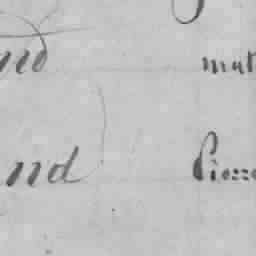 nd mat
nd Pierre